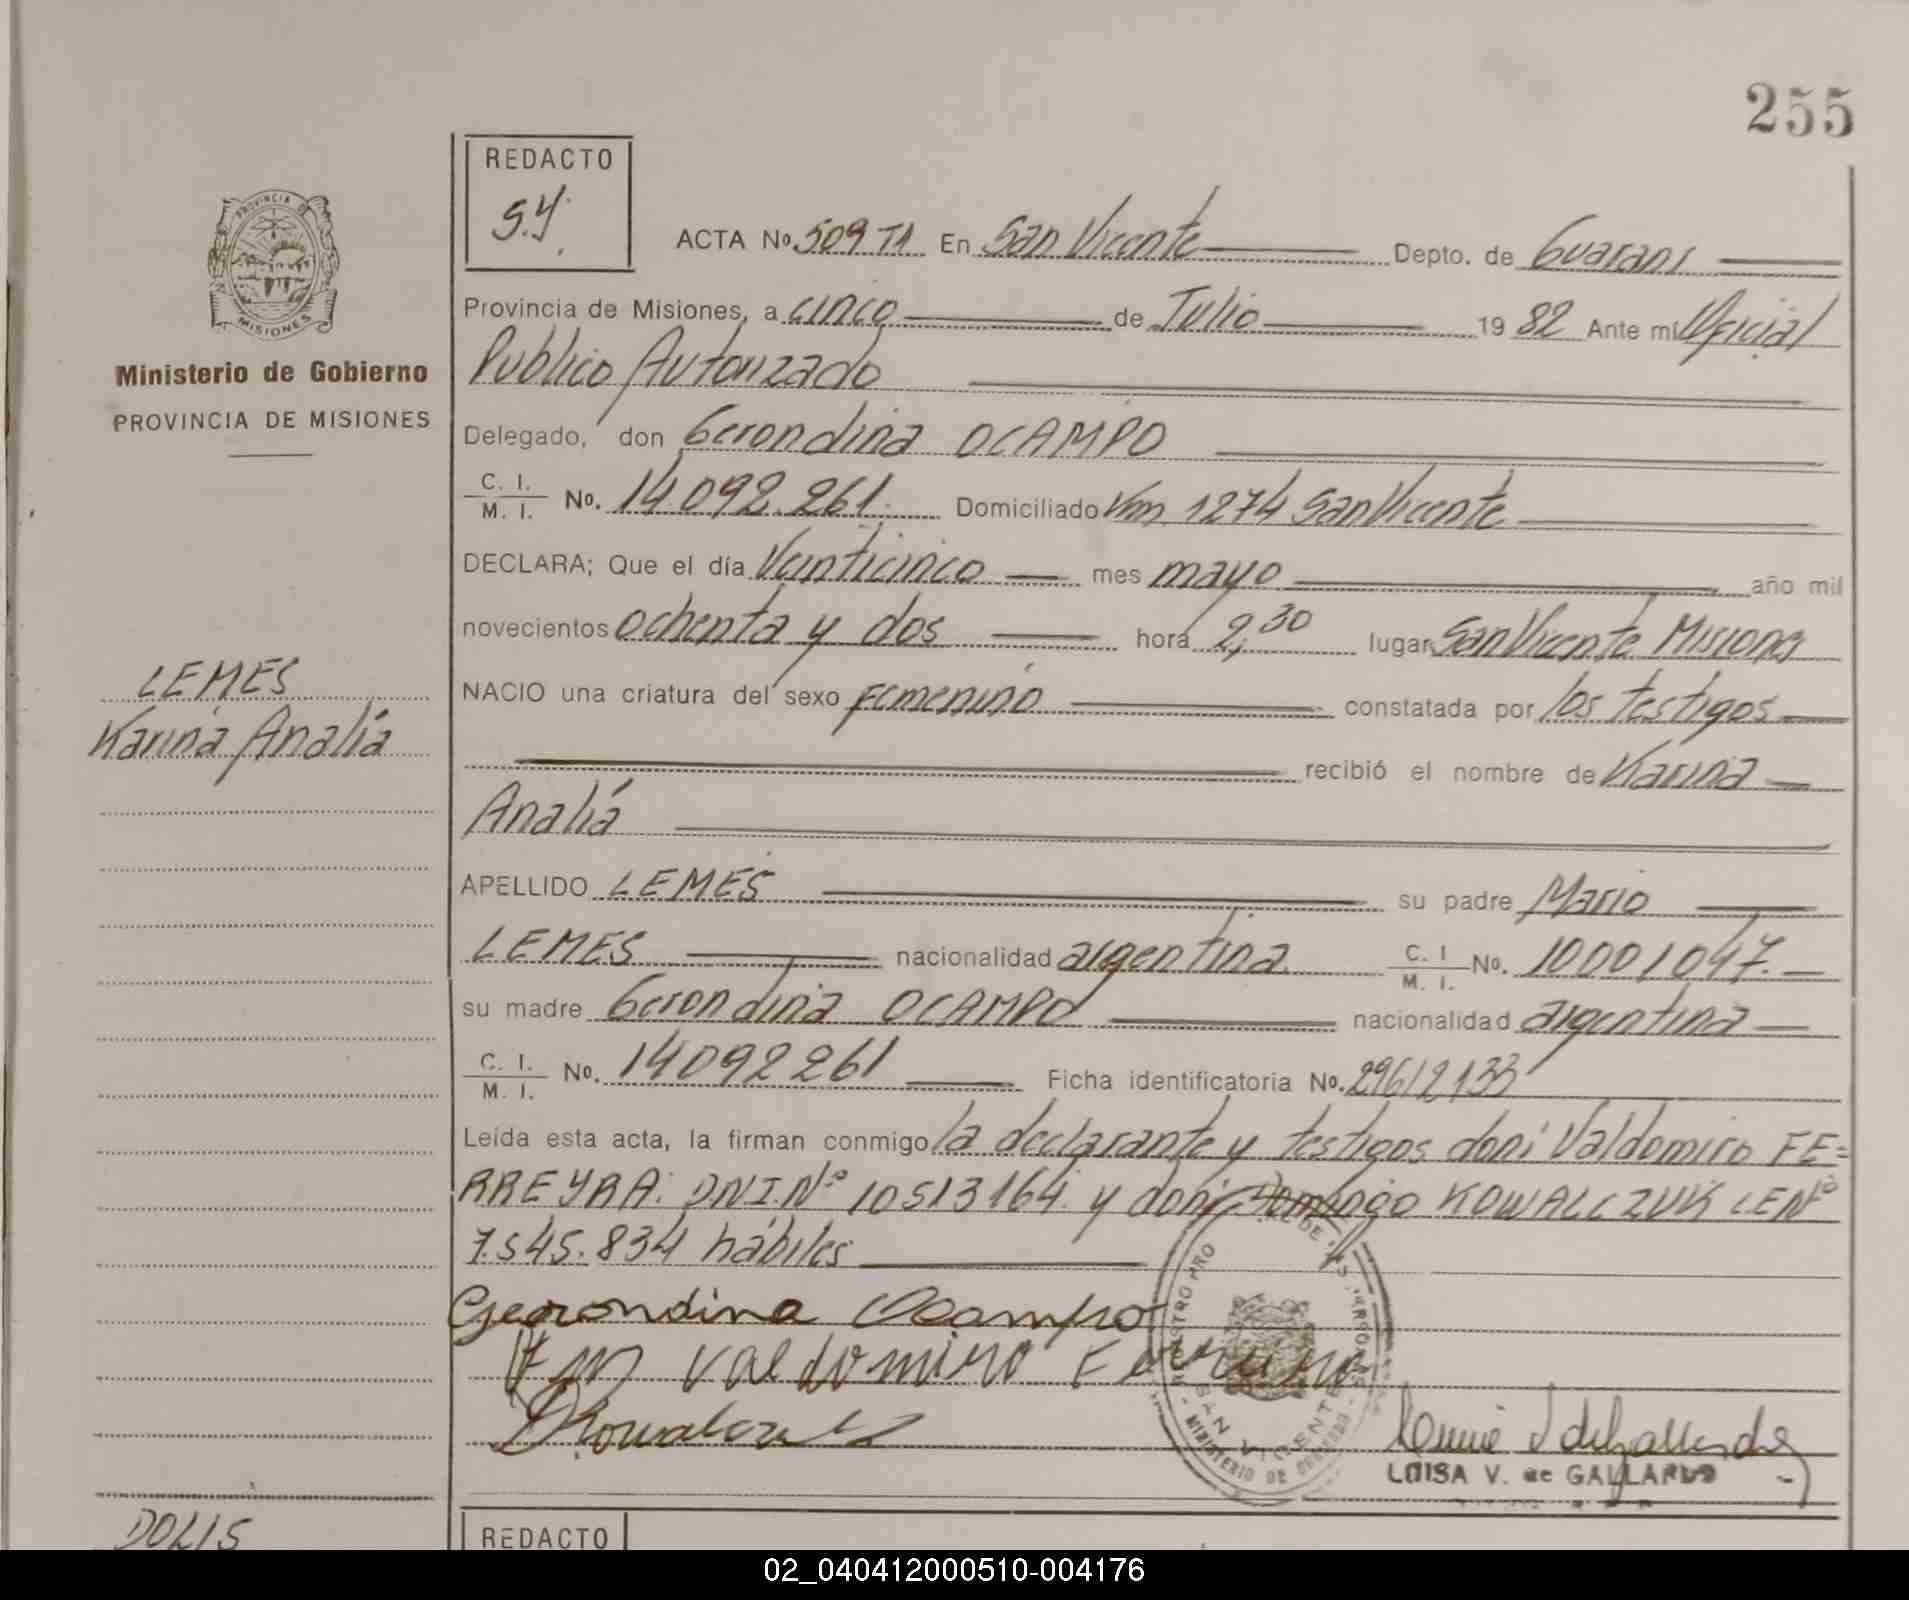 255
REDACTO
S.Y.
PROVINCIA DE
MISIONES
Ministerio de Gobierno
PROVINCIA DE MISIONES
ACTA No. 509 T1 En San Vicente Depto. de Guarani
Provincia de Misiones, a cinco de Julio 1982 Ante mí Oficial
Publico Autorizado
Delegado, don Gerondina OCAMPO
C. I. / M. I. No. 14.092.261. Domiciliado Km 1274 San Vicente
DECLARA; Que el día Veinticinco mes mayo año mil
novecientos ochenta y dos hora 2,30 lugar San Vicente Misiones
NACIO una criatura del sexo femenino constatada por los testigos
recibió el nombre de Karina
Analía
APELLIDO LEMES su padre Mario
LEMES nacionalidad argentina C. I / M. I. No. 10001047.
su madre Gerondina OCAMPO nacionalidad argentina
C. I. / M. I. No. 14092261 Ficha identificatoria No. 29612133
Leída esta acta, la firman conmigo la declarante y testigos don: Valdomiro FE=
RREYRA: DNI.Nº 10513164. y don: Domingo KOWALCZUK LE Nº
7.545.834 hábiles
LEMES
Karina Analía
Gerondina Ocampo
Valdomiro
DKowalczuk
SAN VICENTE
MINISTERIO DE GOBIERNO
LUISA V. de GALLARDO
DOLIS
REDACTO
02_040412000510-004176